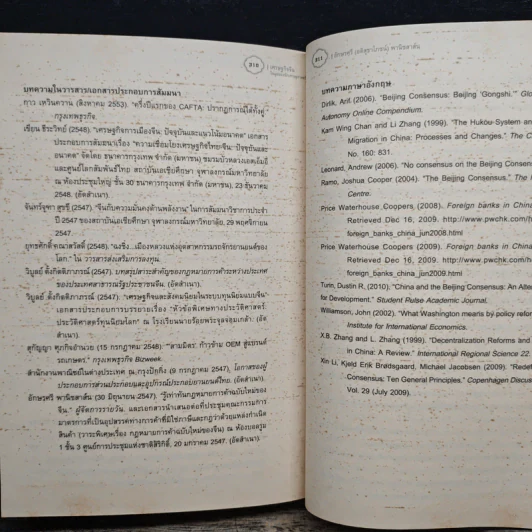 310
เศรษฐกิจจีน
บทความในวารสาร/เอกสารประกอบการสัมมนา
กาว เหวินควาน (สิงหาคม 2553). "ครึ่งปีแรกของ CAFTA: ปรากฏการณ์ได้ทั้งคู่"
กรุงเทพธุรกิจ.
เขียน ธีระวิทย์ (2548). "เศรษฐกิจการเมืองจีน: ปัจจุบันและแนวโน้มอนาคต" เอกสาร
ประกอบการสัมมนาเรื่อง "ความเชื่อมโยงเศรษฐกิจไทย-จีน-ปัจจุบันและ
อนาคต" จัดโดย ธนาคารกรุงเทพ จำกัด (มหาชน) ชมรมบัวหลวงเอสเอ็มอี
และศูนย์โลกสัมพันธ์ไทย สถาบันเอเชียศึกษา จุฬาลงกรณ์มหาวิทยาลัย
ณ ห้องประชุมใหญ่ ชั้น 30 ธนาคารกรุงเทพ จำกัด (มหาชน), 23 ธันวาคม
2548. (อัดสำเนา).
จันทร์จุฑา สุขขี (2547). "จีนกับความมั่นคงด้านพลังงาน" ในการสัมมนาวิชาการประจำ
ปี 2547 ของสถาบันเอเชียศึกษา จุฬาลงกรณ์มหาวิทยาลัย, 29 พฤศจิกายน
2547.
ยุทธศักดิ์ คณาสวัสดิ์ (2548). "ฉงชิ่ง...เมืองหลวงแห่งอุตสาหกรรมรถจักรยานยนต์ของ
โลก." ใน วารสารส่งเสริมการลงทุน.
วิบูลย์ ตั้งกิตติภาภรณ์ (2547). บทสรุปสาระสำคัญของกฎหมายการค้าระหว่างประเทศ
ของประเทศสาธารณรัฐประชาชนจีน. (อัดสำเนา).
วิบูลย์ ตั้งกิตติภาภรณ์ (2547). "เศรษฐกิจและสังคมนิยมในระบบทุนนิยมแบบจีน"
เอกสารประกอบการบรรยายเรื่อง "หัวข้อพิเศษทางประวัติศาสตร์:
ประวัติศาสตร์ทุนนิยมโลก" ณ โรงเรียนนายร้อยพระจุลจอมเกล้า. (อัด
สำเนา).
สุกัญญา ศุภกิจอำนวย (15 กรกฎาคม 2548). "'สามมิตร' ก้าวข้าม OEM สู่แบรนด์
รถเกษตร." กรุงเทพธุรกิจ Bizweek.
สำนักงานพาณิชย์ในต่างประเทศ ณ กรุงปักกิ่ง (9 กรกฎาคม 2547). โอกาสของผู้
ประกอบการส่วนประกอบและอุปกรณ์ประกอบยานยนต์ไทย. (อัดสำเนา).
อักษรศรี พานิชสาส์น (30 มิถุนายน 2547). "รู้เท่าทันกฎหมายการค้าฉบับใหม่ของ
จีน." ผู้จัดการรายวัน. และเอกสารนำเสนอต่อที่ประชุมคณะกรรมการ
มาตรการที่เป็นอุปสรรคทางการค้าที่มิใช่ภาษีและกฎว่าด้วยแหล่งกำเนิด
สินค้า (วาระพิเศษเรื่อง กฎหมายการค้าฉบับใหม่ของจีน) ณ ห้องบอลรูม
1 ชั้น 3 ศูนย์การประชุมแห่งชาติสิริกิติ์, 20 มกราคม 2547. (อัดสำเนา).
311 | อักษรศรี (อติสุธาโภชน์) พานิชสาส์น
บทความภาษาอังกฤษ
Dirlik, Arif. (2006). "Beijing Consensus: Beijing 'Gongshi.'"
Autonomy Online Compendium.
Kam Wing Chan and Li Zhang (1999). "The Hukou System and
Migration in China: Processes and Changes." The
No. 160: 831.
Leonard, Andrew (2006). "No consensus on the Beijing
Ramo, Joshua Cooper (2004). "The Beijing Consensus."
Centre.
Price Waterhouse Coopers, (2008). Foreign banks in
Retrieved Dec 16, 2009. http://www.pwchk.com/
foreign_banks_china_jun2008.html
Price Waterhouse Coopers (2009). Foreign banks in
Retrieved Dec 16, 2009. http://www.pwchk.com/
foreign_banks_china_jun2009.html
Turin, Dustin R, (2010). "China and the Beijing Consensus: An
for Development." Student Pulse Academic Journal.
Williamson, John (2002). "What Washington means by policy
Institute for International Economics.
X.B. Zhang and L. Zhang (1999). "Decentralization Reforms and
in China: A Review." International Regional Science 22.
Xin Li, Kjeld Erik Brødsgaard, Michael Jacobsen (2009).
Consensus: Ten General Principles." Copenhagen
Vol. 29 (July 2009).